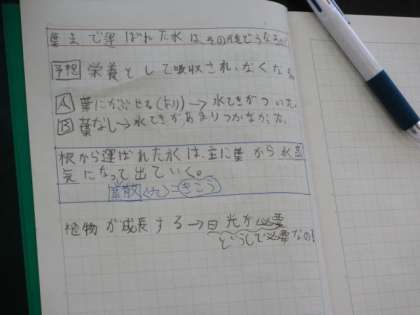 葉まで運ばれた水は、その後どうなる。
予想 栄養として吸収され、なくなる
A 葉にかぶせる(より)→水てきがついた
B 葉なし→水てきがあまりつかなかった。
根から運ばれた水は、主に葉から水蒸
気になって出ていく。
蒸散
きこう
植物が成長する→日光が必要
どうして必要なの?